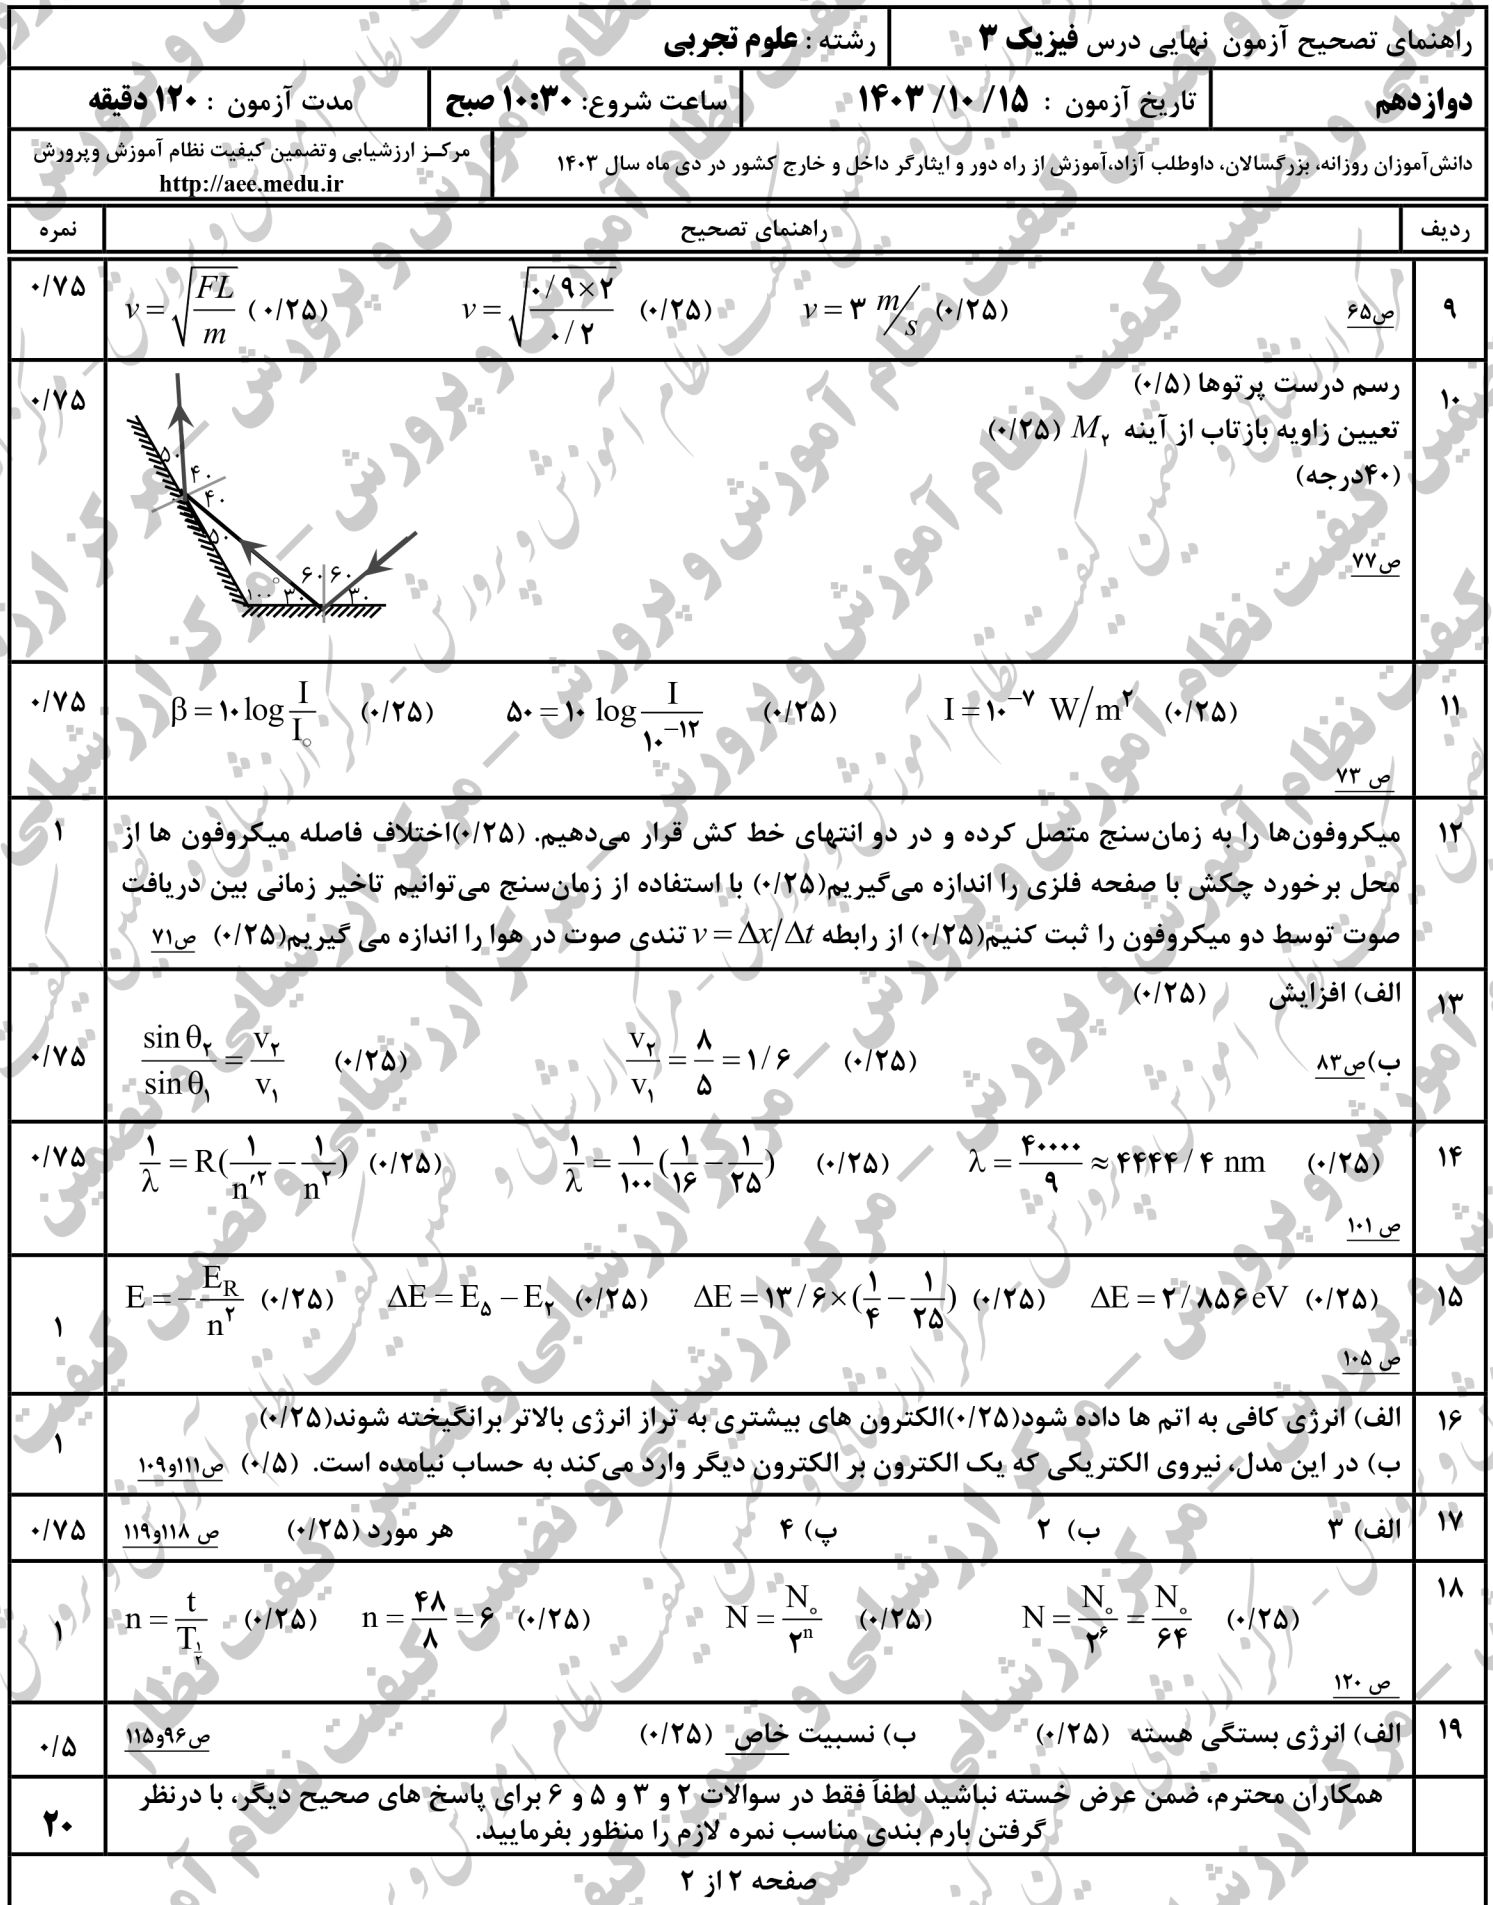 راهنمای تصحیح آزمون نهایی درس فیزیک ۳ رشته : علوم تجربی
دوازدهم تاریخ آزمون : ۱۵ /۱۰ /۱۴۰۳ ساعت شروع: ۱۰:۳۰ صبح مدت آزمون : ۱۲۰ دقیقه
دانش‌آموزان روزانه، بزرگسالان، داوطلب آزاد،آموزش از راه دور و ایثارگر داخل و خارج کشور در دی ماه سال ۱۴۰۳ مرکـز ارزشیابی وتضمین کیفیت نظام آموزش وپرورش
http://aee.medu.ir
ردیف راهنمای تصحیح نمره
۹ v = √(FL/m) (۰/۲۵) v = √(۰/۹×۲ / ۰/۲) (۰/۲۵) v = ۳ m/s (۰/۲۵) ص۶۵ ۰/۷۵
۱۰ رسم درست پرتوها (۰/۵) ۰/۷۵
تعیین زاویه بازتاب از آینه M۲ (۰/۲۵)
(۴۰درجه)
ص۷۷
۵۰ ۴۰
۴۰
۵۰
۶۰ ۶۰
۱۰۰° ۳۰ ۳۰
۱۱ β = ۱۰ log I/I۰ (۰/۲۵) ۵۰ = ۱۰ log I/۱۰^−۱۲ (۰/۲۵) I = ۱۰^−۷ W/m^۲ (۰/۲۵) ۰/۷۵
ص ۷۳
۱۲ میکروفون‌ها را به زمان‌سنج متصل کرده و در دو انتهای خط کش قرار می‌دهیم. (۰/۲۵)اختلاف فاصله میکروفون ها از ۱
محل برخورد چکش با صفحه فلزی را اندازه می‌گیریم(۰/۲۵) با استفاده از زمان‌سنج می‌توانیم تاخیر زمانی بین دریافت
صوت توسط دو میکروفون را ثبت کنیم(۰/۲۵) از رابطه v = Δx/Δt تندی صوت در هوا را اندازه می گیریم(۰/۲۵) ص۷۱
۱۳ الف) افزایش (۰/۲۵)
ب)ص۸۳ sin θ۲ / sin θ۱ = v۲/v۱ (۰/۲۵) v۲/v۱ = ۸/۵ = ۱/۶ (۰/۲۵) ۰/۷۵
۱۴ ۱/λ = R(۱/n′^۲ − ۱/n^۲) (۰/۲۵) ۱/λ = ۱/۱۰۰(۱/۱۶ − ۱/۲۵) (۰/۲۵) λ = ۴۰۰۰۰/۹ ≈ ۴۴۴۴/۴ nm (۰/۲۵) ۰/۷۵
ص ۱۰۱
۱۵ E = −E_R/n^۲ (۰/۲۵) ΔE = E۵ − E۲ (۰/۲۵) ΔE = ۱۳/۶×(۱/۴ − ۱/۲۵) (۰/۲۵) ΔE = ۲/۸۵۶ eV (۰/۲۵) ۱
ص ۱۰۵
۱۶ الف) انرژی کافی به اتم ها داده شود(۰/۲۵)الکترون های بیشتری به تراز انرژی بالاتر برانگیخته شوند(۰/۲۵) ۱
ب) در این مدل، نیروی الکتریکی که یک الکترون بر الکترون دیگر وارد می‌کند به حساب نیامده است. (۰/۵) ص۱۱۱و۱۰۹
۱۷ الف) ۳ ب) ۲ پ) ۴ هر مورد (۰/۲۵) ص ۱۱۸و۱۱۹ ۰/۷۵
۱۸ n = t/T۱/۲ (۰/۲۵) n = ۴۸/۸ = ۶ (۰/۲۵) N = N۰/۲^n (۰/۲۵) N = N۰/۲^۶ = N۰/۶۴ (۰/۲۵) ۱
ص ۱۲۰
۱۹ الف) انرژی بستگی هسته (۰/۲۵) ب) نسبیت خاص (۰/۲۵) ص۹۶و۱۱۵ ۰/۵
همکاران محترم، ضمن عرض خسته نباشید لطفاً فقط در سوالات ۲ و ۳ و ۵ و ۶ برای پاسخ های صحیح دیگر، با درنظر ۲۰
گرفتن بارم بندی مناسب نمره لازم را منظور بفرمایید.
صفحه ۲ از ۲